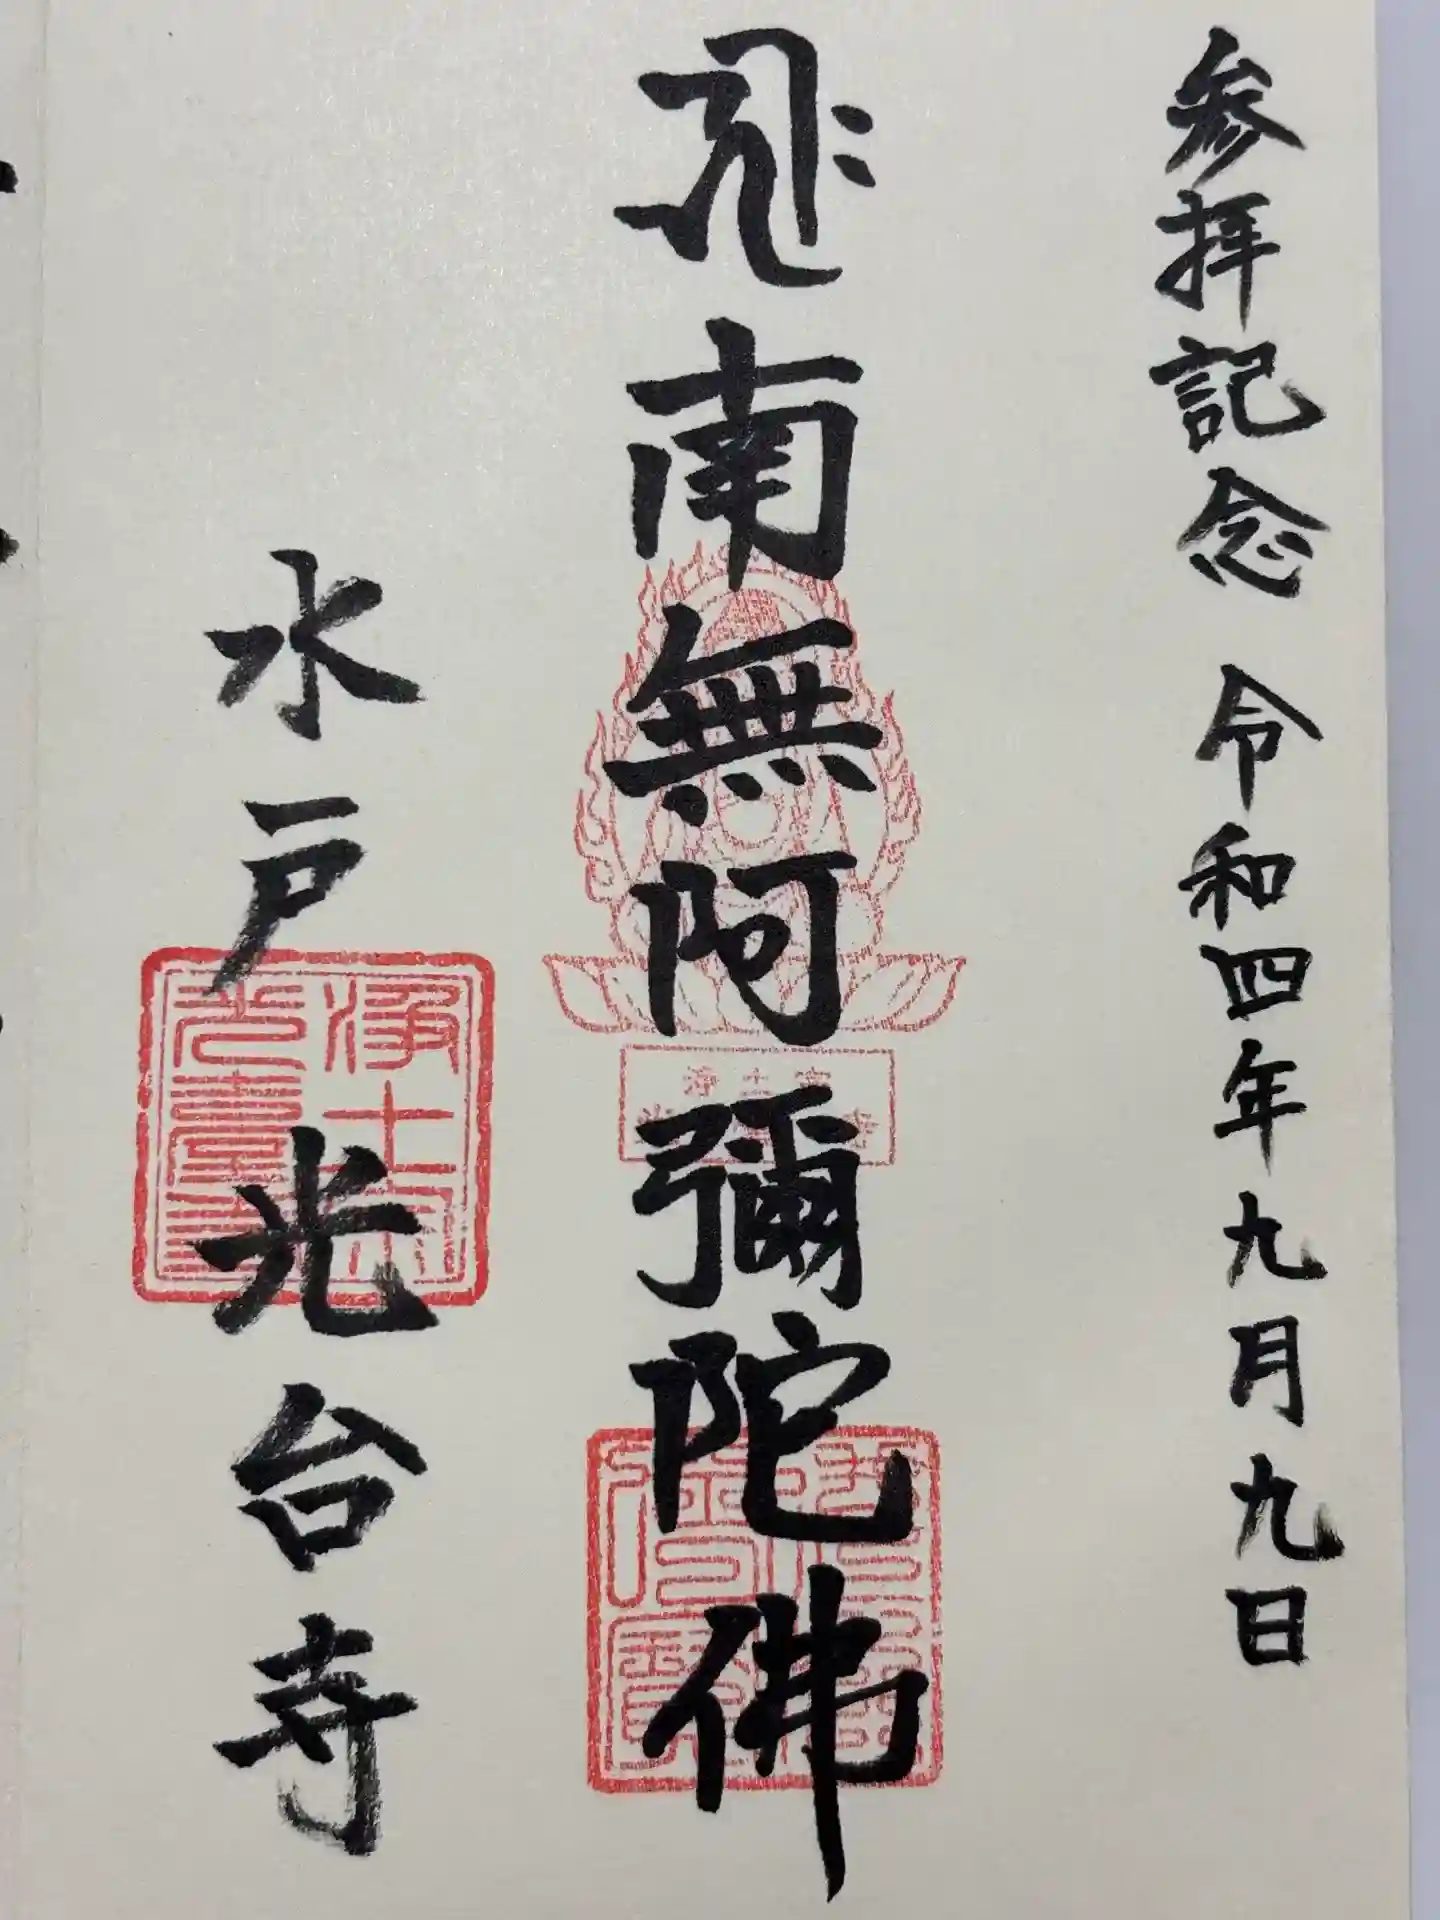 参拝記念 令和四年九月九日
𑖮𑖿𑖨𑖱𑖾
南無阿彌陀佛
水戸 光台寺
浄土宗
光臺寺